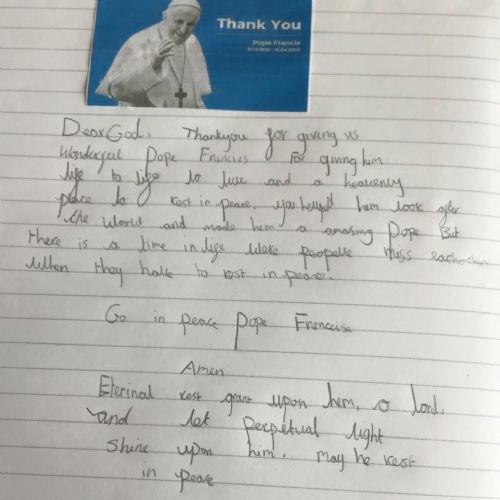 Thank You
Pope Francis
Dear God, Thankyou for giving us
wonderful Pope Francies For giving him
life to life to live and a heavenly
place to rest in peace. you helped him look after
the world and made him a amazing Pope But
there is a time in life were peopelle miss eachother
when they have to rest in peace.
Go in peace Pope Franceise
Amen
Eterinal rest grant upon him, o lord,
and let perpetual light
shine upon him. may he rest
in peace